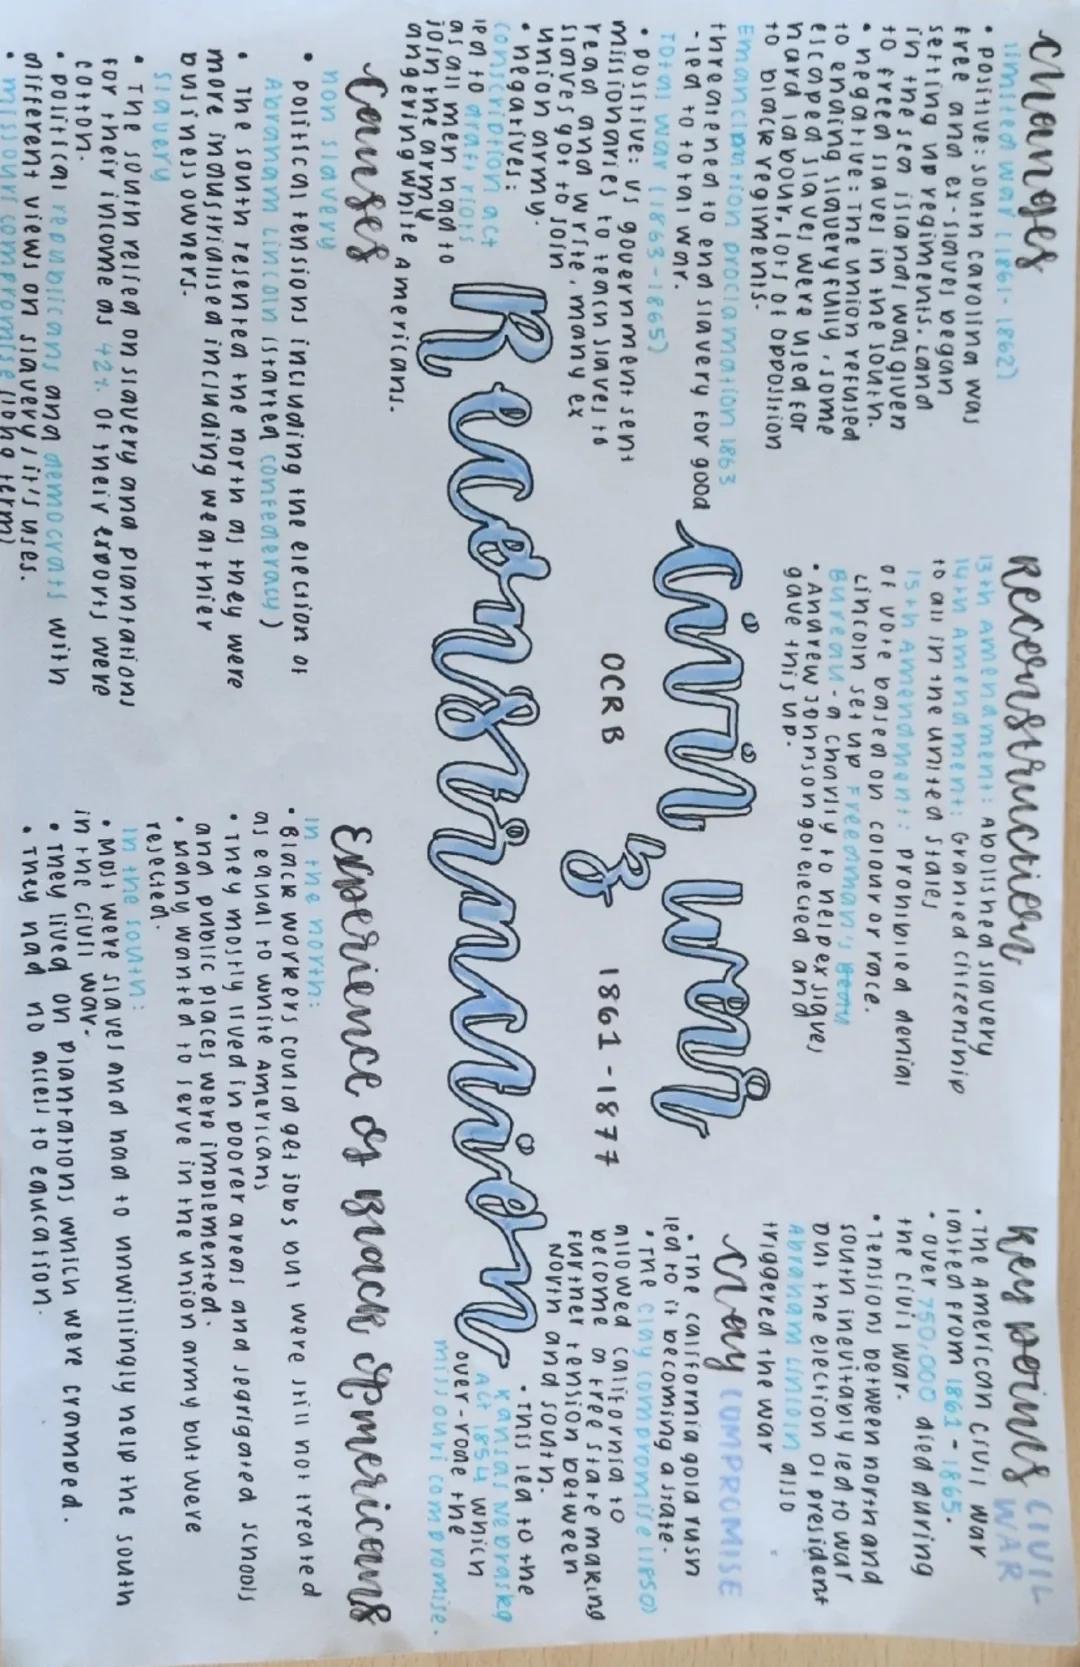 changes
limited war (1861-1862)
• positive: south carolina was
free and ex-slaves began
setting up regiments. Land
in the sea islands was given
to freed slaves in the south.
• negative: The union refused
to ending slavery fully. some
escaped slaves were used for
hard labour, lots of opposition
to black regiments.
Emancipation proclamation 1863
threatened to end slavery for good
- led to total war.
Total war (1863-1865)
• positive: us government sent
missionaries to teach slaves to
read and write, many ex
slaves got to join
union army.
• negatives:
conscription act
led to draft riots
as all men had to
join the army
angering white Americans.
Reconstruction
13th Amendment: Abolished slavery
14th Amendment: Granted citizenship
to all in the united states
15th Amendment: prohibited denial
of vote based on colour or race.
Lincoln set up Freedman's
Bureau - a charity to help ex slaves,
• Andrew Johnson got elected and
gave this up.
key points CIVIL WAR
• The American civil war
lasted from 1861-1865.
• over 750,000 died during
the civil war.
• Tensions between north and
south inevitably led to war
but the election of president
Abraham Lincoln also
triggered the war
Clay COMPROMISE
• The california gold rush
led to it becoming a state.
• The clay compromise (1850)
allowed california to
become a free state making
further tension between
North and south.
• This led to the
Kansas Nebraska
Act 1854 which
over-rode the
missouri compromise.
Civil War
&
OCR B
1861-1877
Reconstruction
Causes
non slavery
• political tensions including the election of
Abraham Lincoln (started confederacy)
• The south resented the north as they were
more industrialised including wealthier
business owners.
slavery
• The south relied on slavery and plantations
for their income as 42% of their exports were
cotton.
• political republicans and democrats with
different views on slavery/it's uses.
• missouri compromise (long term)
Experience of Black Americans
in the north:
• Black workers could get jobs but were still not treated
as equal to white Americans
• They mostly lived in poorer areas and segrigated schools
and public places were implemented.
• Many wanted to serve in the union army but were
rejected.
in the south:
• Most were slaves and had to unwillingly help the south
in the civil war.
• They lived on plantations which were cramped.
• They had no access to education.